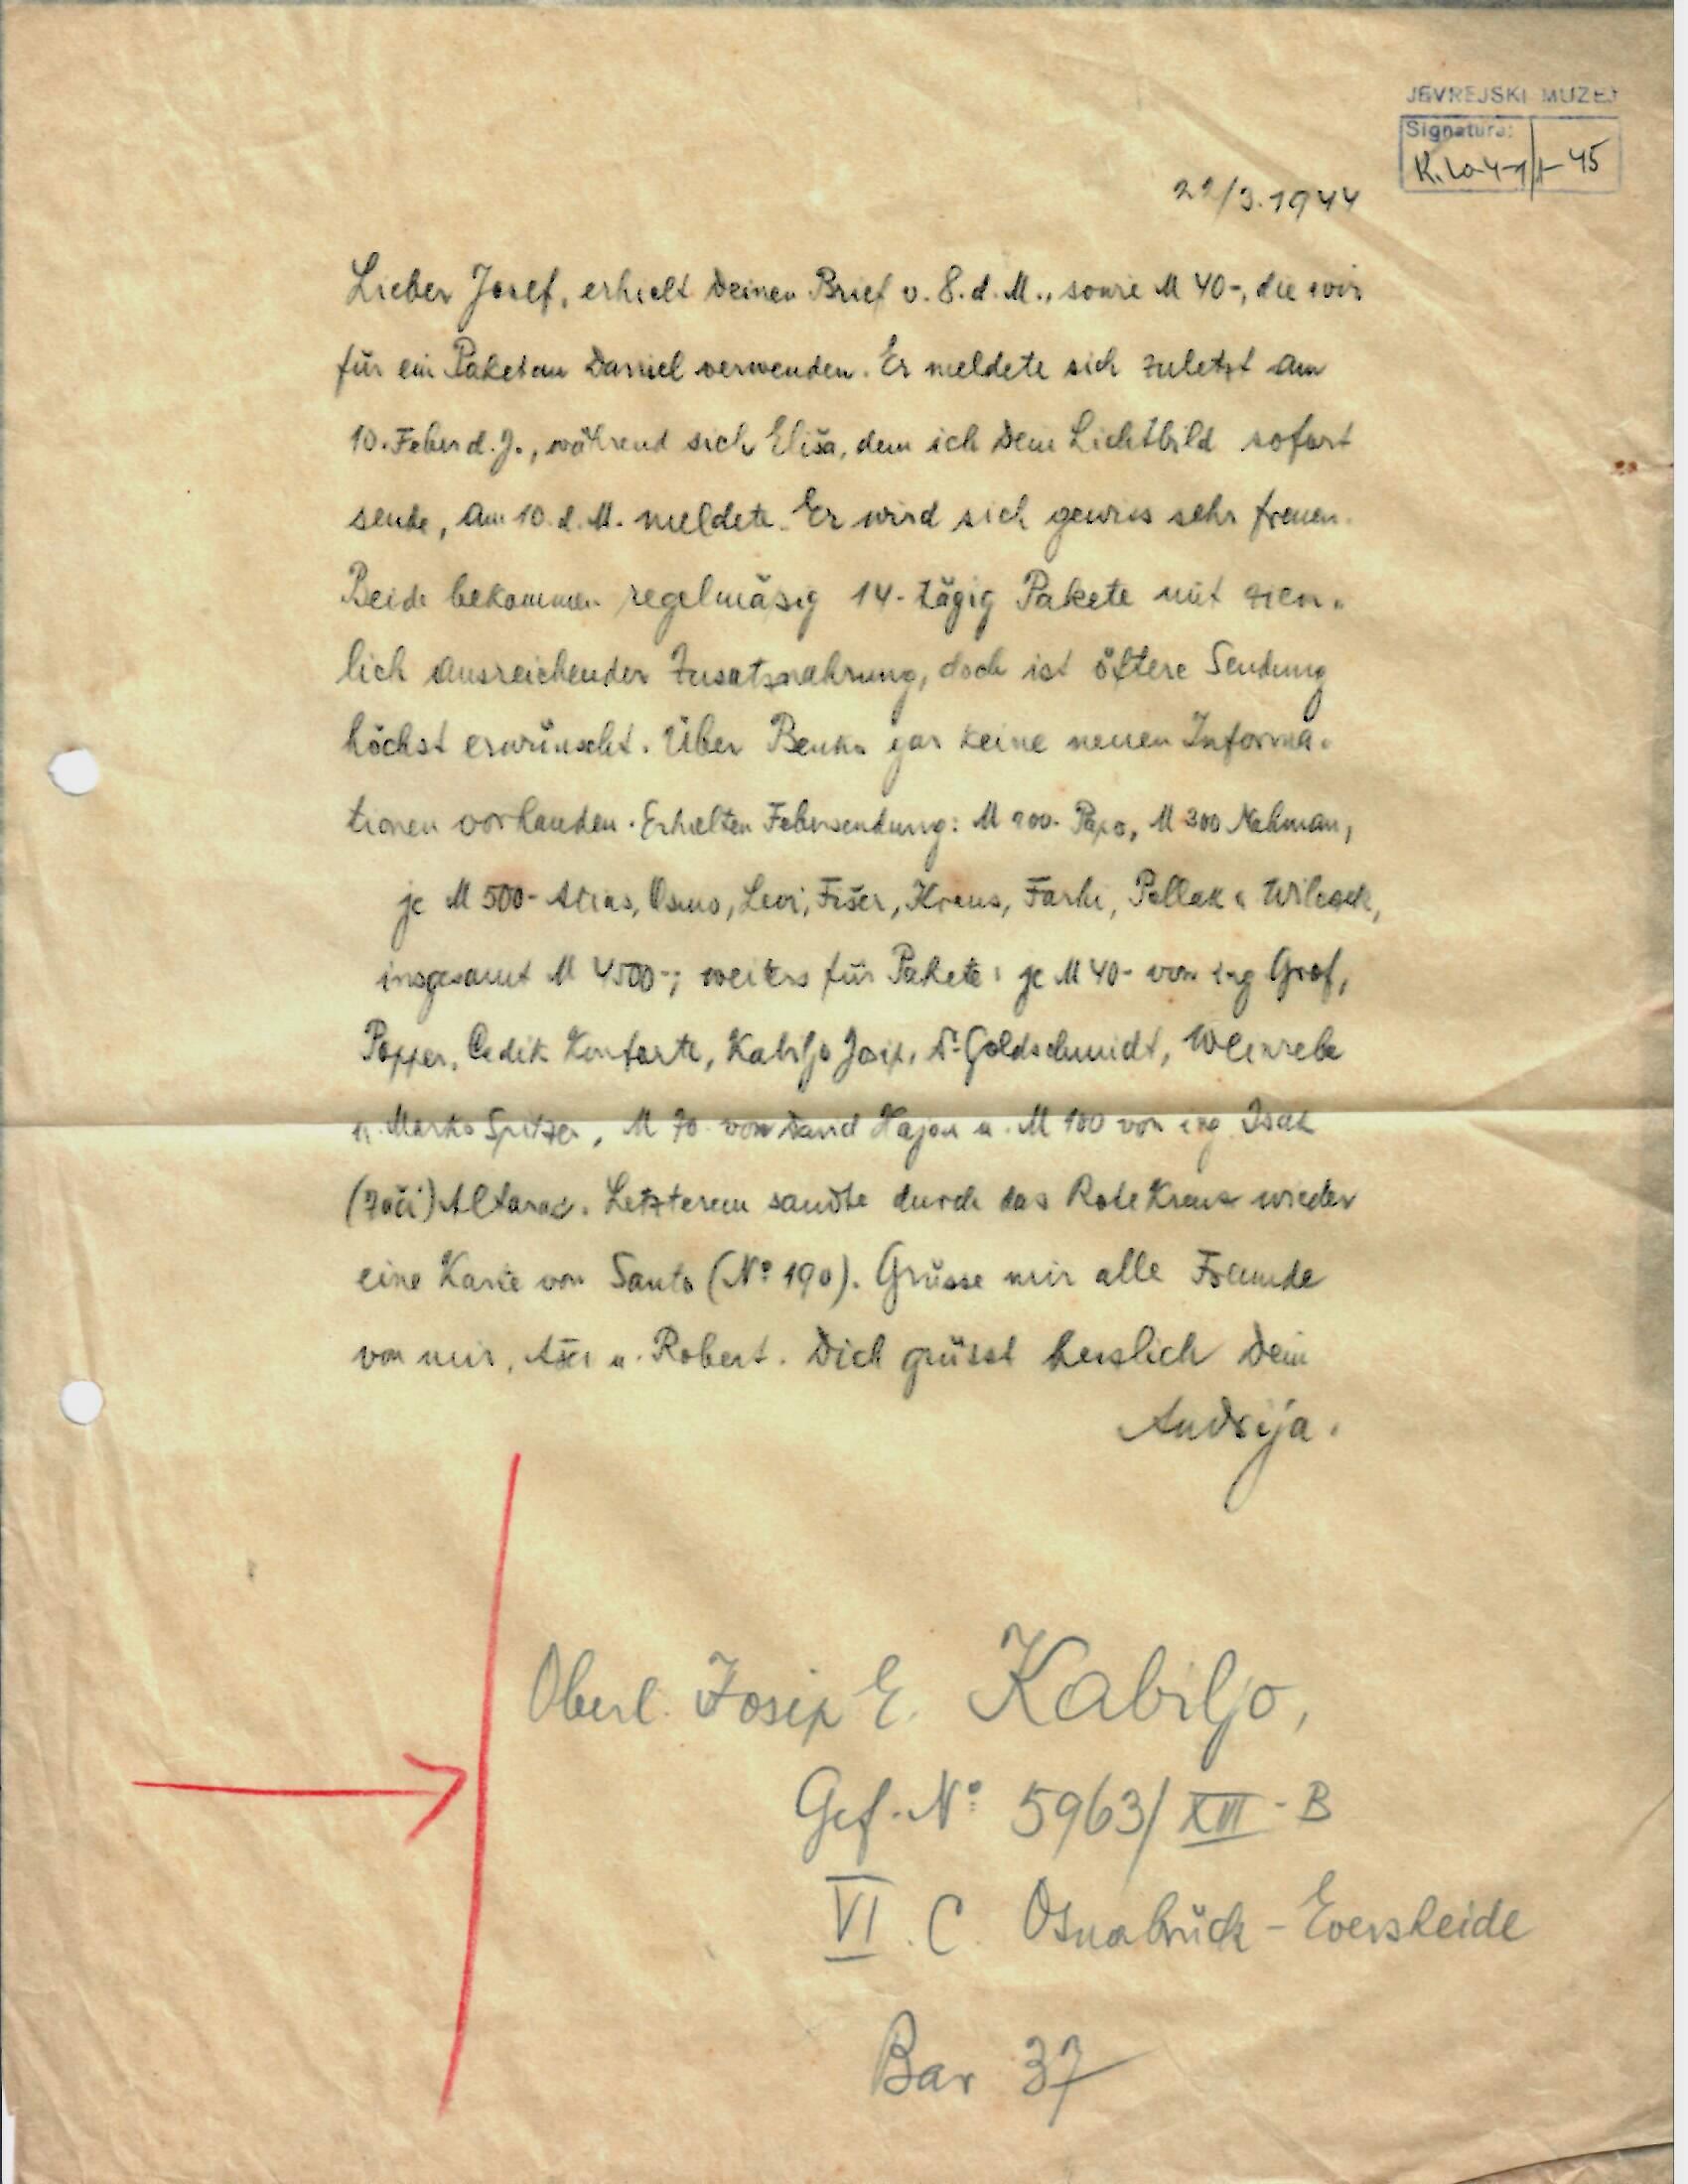 JEVREJSKI MUZEJ
Signatura:
45
22/3.1944
Lieber Josef, erhielt Deinen Brief v. 8. d. M., sowie M 40-, die wir
für ein Paket an Daniel verwenden. Er meldete sich zuletzt am
10. Feber d. J., während sich Eliša, dem ich Dein Lichtbild sofort
sende, am 10. d. M. meldete. Er wird sich gewiss sehr freuen.
Beide bekommen regelmäsig 14-tägig Pakete mit ziem-
lich ausreichender Zusatznahrung, doch ist öftere Sendung
höchst erwünscht. Über Benko gar keine neuen Informa-
tionen vorhanden. Erhielten Febersendung: M 200- Papo, M 300 Nahman,
je M 500- Atias, Osmo, Levi, Fišer, Kraus, Farhi, Pollak u
insgesamt M 4500-; weiters für Pakete: je M 40- von ing Grof,
Popper, Cedik Konforti, Kabiljo Josip, Dr Goldschmidt, Weinrebe
u. Marko Spitzer, M 70- von David Hajon u. M 100 von ing Isak
(Zači) Altarac. Letzterem sandte durch das Rote Kreuz wieder
eine Karte von Santo (No 190). Grüsse mir alle Freunde
von mir, u. Robert. Dich grüsst herzlich Dein
Andrija.
Oberl. Josip E. Kabiljo,
Gef. No 5963/XVII-B
VI. C. Osnabrück - Eversheide
Bar 37